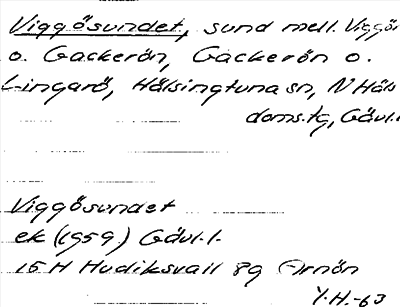 Viggösundet, sund mell. Viggö
o. Gackerön, Gackerön o.
Lingarö, Hälsingtuna sn, N Häls
doms.tg, Gävl.
Viggösundet
ek (1959) Gävl.l.
15H Hudiksvall 8g Arnön
Y.H.-63